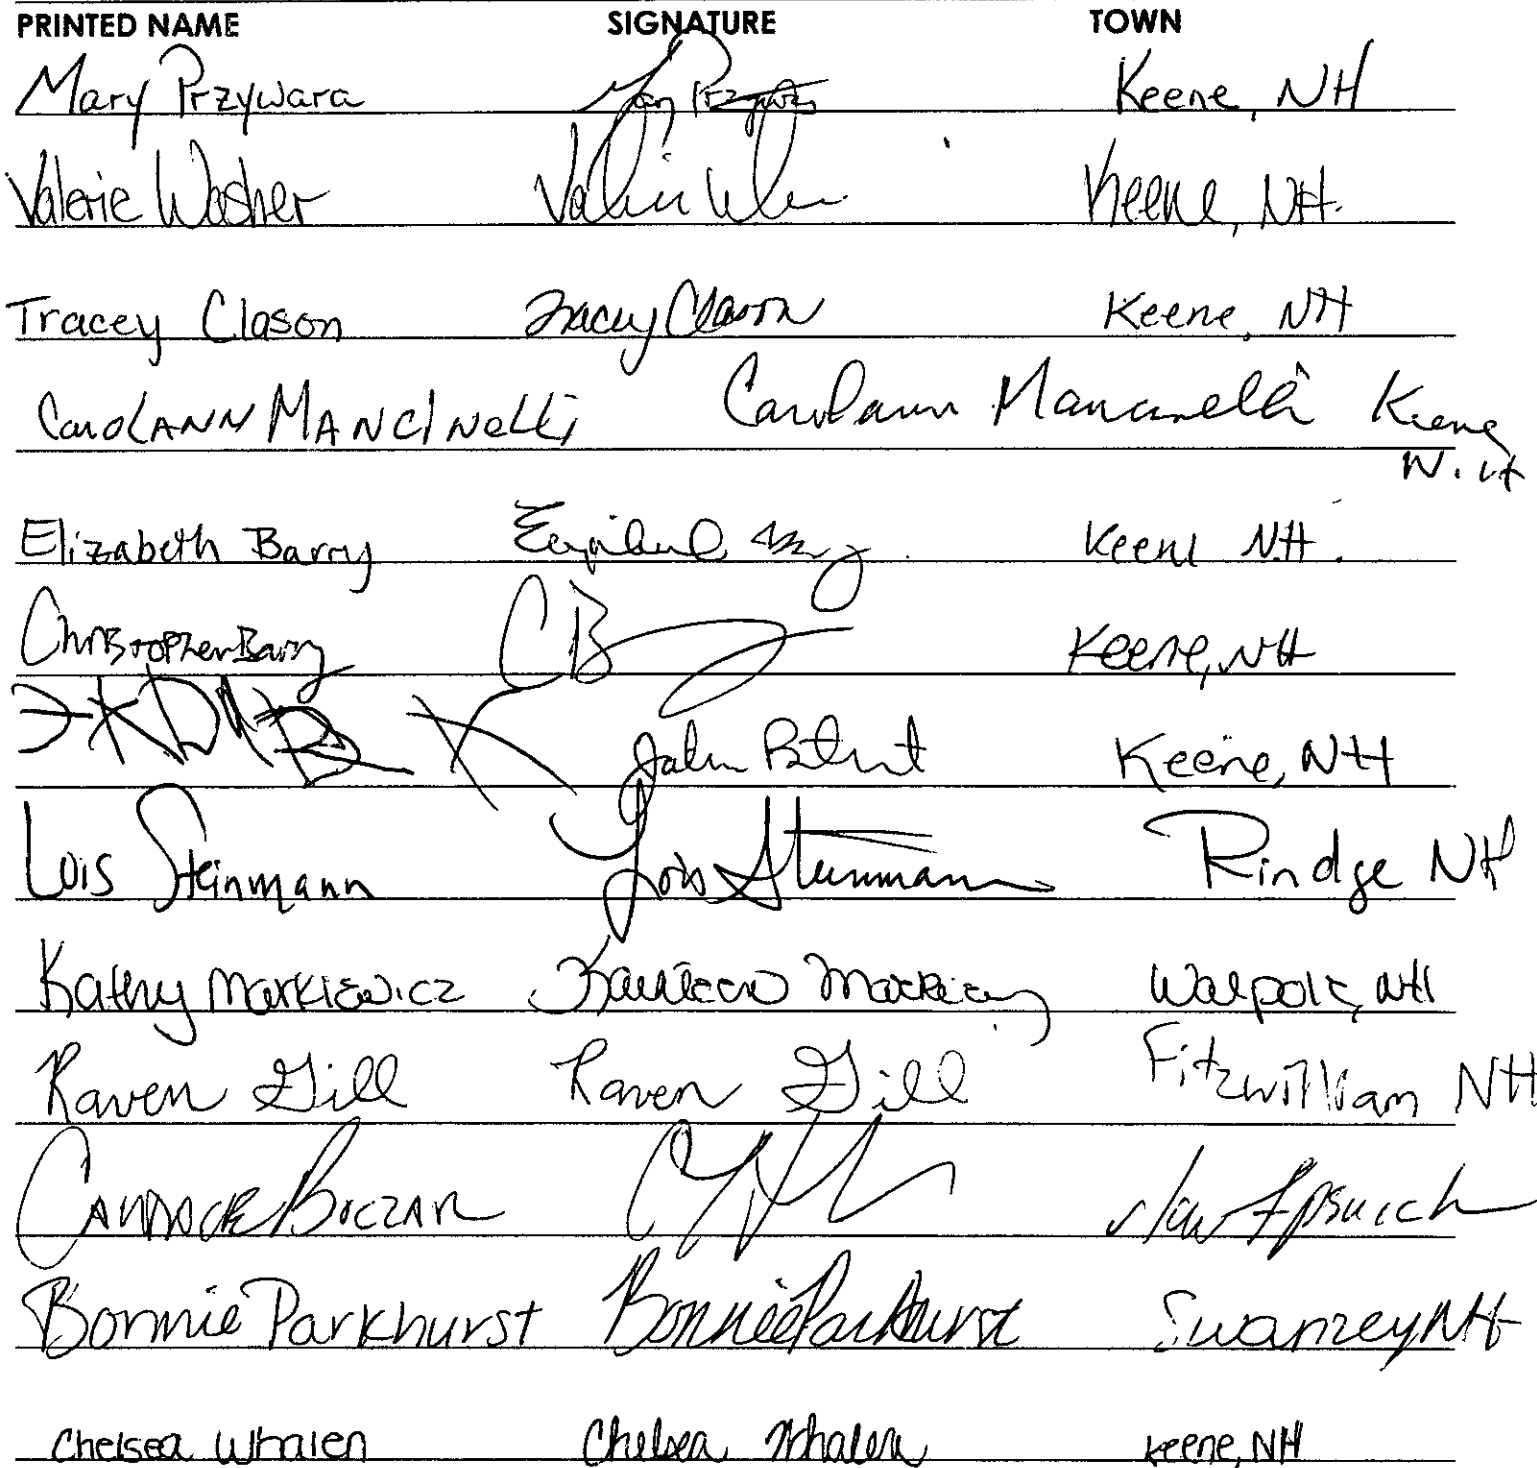 PRINTED NAME SIGNATURE TOWN
Mary Przywara Keene, NH
Valerie Washer Keene, NH.
Tracey Clason Tracey Clason Keene, NH
CarolANN MANCINelli Carolann Mancinelli Keene
N.H
Elizabeth Barry Keene N.H.
Christopher Barry CB Keene, NH
John Keene, NH
Lois Steinmann Lois Steinmann Rindge NH
Kathy Markiewicz Kathleen Walpole, NH
Raven Gill Raven Gill Fitzwilliam NH
CANDACE BOCZAR New Ipswich
Bonnie Parkhurst Bonnie Parkhurst Swanzey NH
Chelsea Whalen Chelsea Whalen Keene, NH